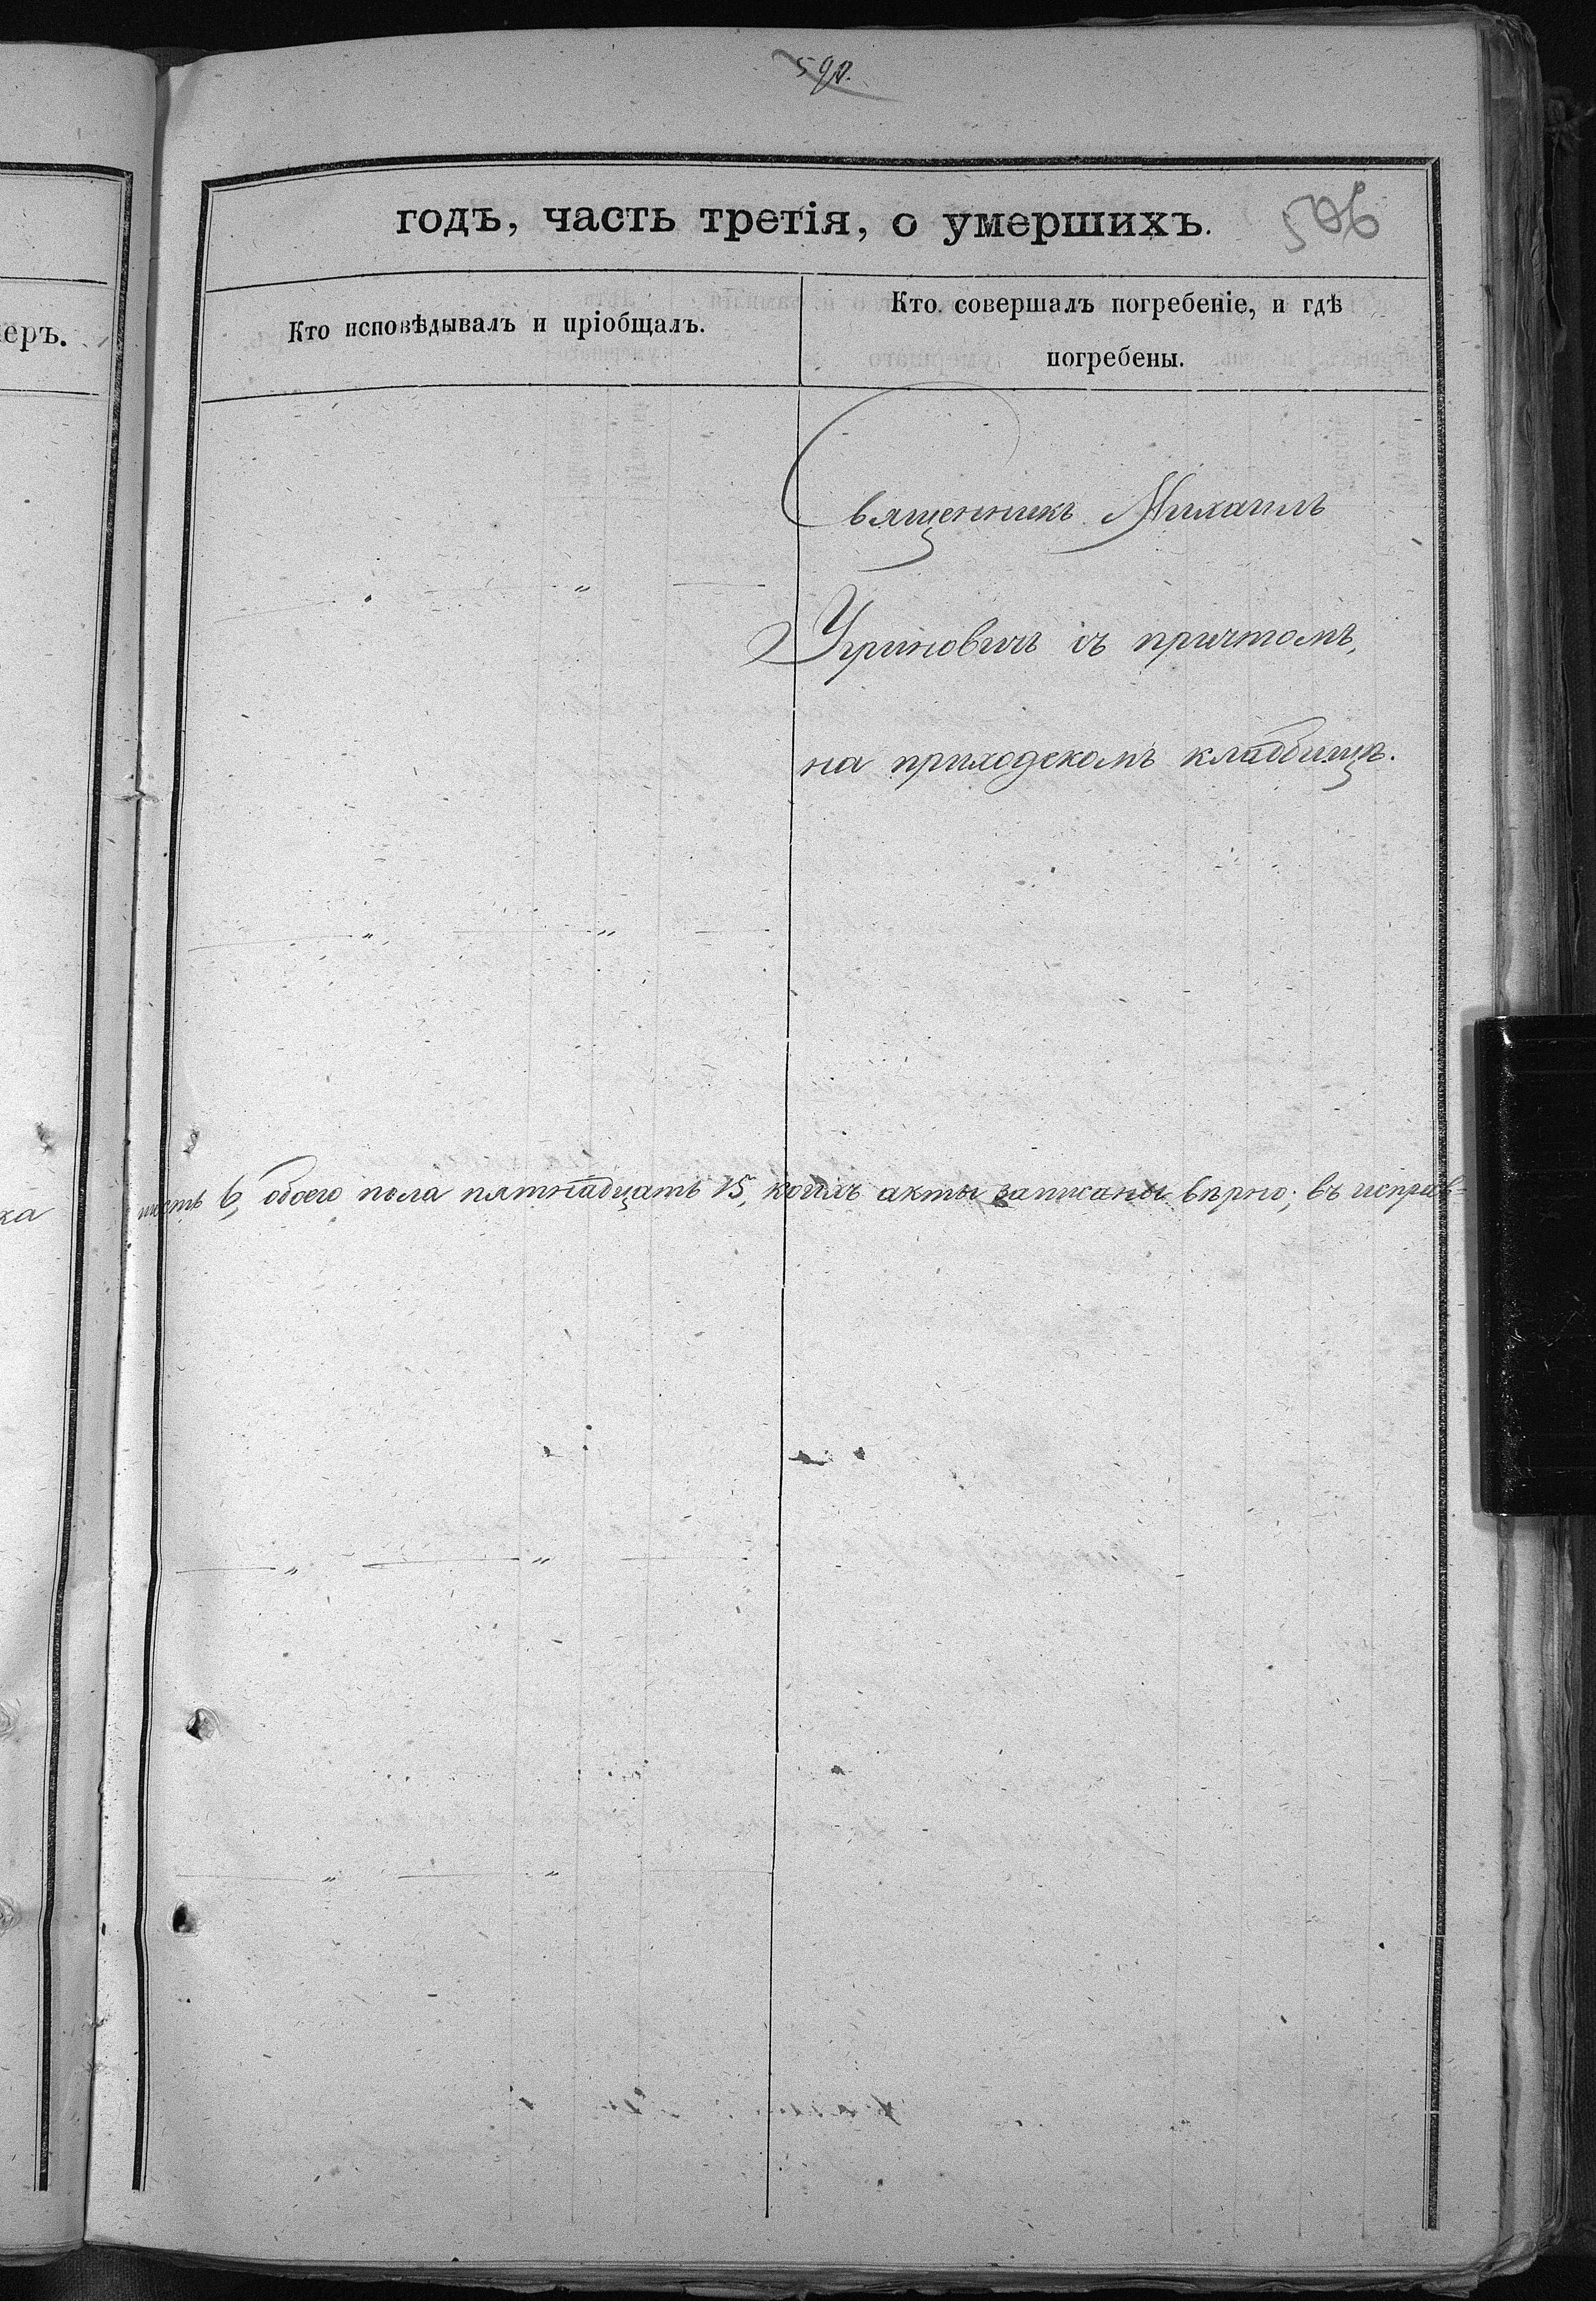 590.
годъ, часть третія, о умершихъ.
506
еръ.
Кто исповѣдывалъ и пріобщалъ.
Кто совершалъ погребеніе, и гдѣ
погребены.
Священникъ Михаилъ
" Угриновичъ съ причтомъ,
на приходскомъ кладбищѣ.
" "
ка
шесть 6, обоего пола пятнадцать 15, коихъ акты записаны вѣрно; въ исправ=
" "
" "